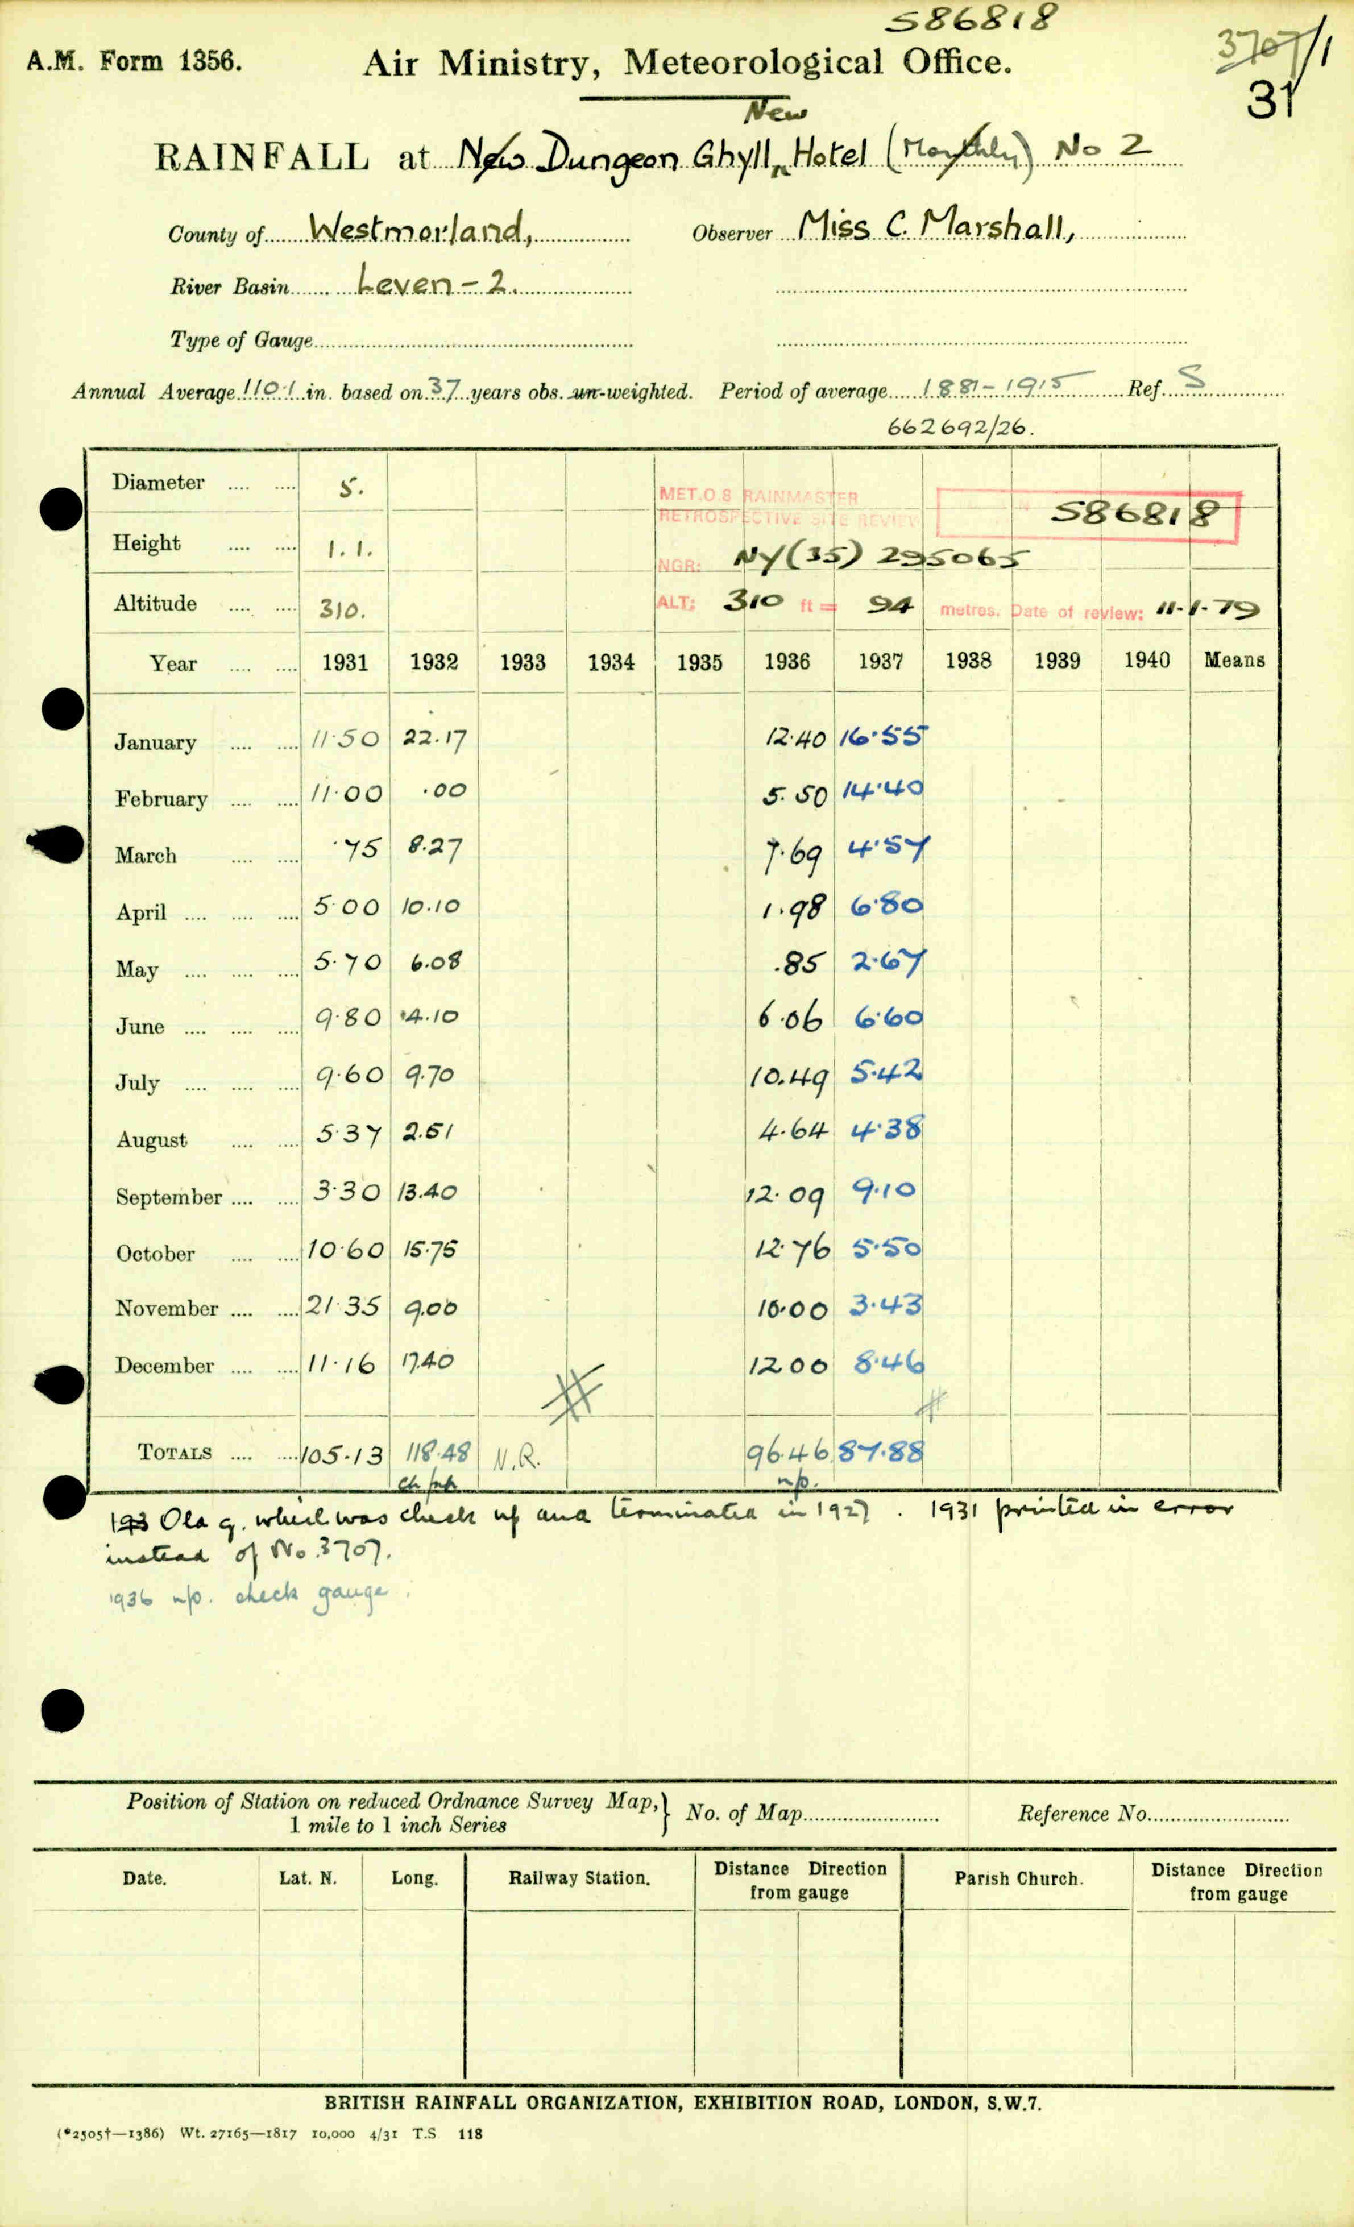 586818
A.M. Form 1356.
Air Ministry, Meteorological Office.
3707/1
31
New
RAINFALL at New Dungeon Ghyll Hotel (Monthly) No 2
County of Westmorland, Observer Miss C. Marshall,
River Basin Leven - 2.
Type of Gauge
Annual Average 110.1 in. based on 37 years obs. un-weighted. Period of average 1881-1915 Ref. S
662692/26.
Diameter 5.
MET.O.8 RAINMASTER
RETROSPECTIVE SITE REVIEW
586818
Height 1.1.
NGR: NY(35) 295065
Altitude 310.
ALT: 310 ft = 94 metres. Date of review: 11-1-79
Year 1931 1932 1933 1934 1935 1936 1937 1938 1939 1940 Means
January 11.50 22.17 12.40 16.55
February 11.00 .00 5.50 14.40
March .75 8.27 7.69 4.57
April 5.00 10.10 1.98 6.80
May 5.70 6.08 .85 2.67
June 9.80 4.10 6.06 6.60
July 9.60 9.70 10.49 5.42
August 5.37 2.51 4.64 4.38
September 3.30 13.40 12.09 9.10
October 10.60 15.75 12.76 5.50
November 21.35 9.00 10.00 3.43
December 11.16 17.40 12.00 8.46
TOTALS 105.13 118.48 N.R. 96.46 87.88
n/p.
193 Old g. which was check up and terminated in 1927. 1931 printed in error
instead of No. 3707.
1936 n/p. check gauge.
Position of Station on reduced Ordnance Survey Map,
1 mile to 1 inch Series
No. of Map
Reference No.
Date. Lat. N. Long. Railway Station. Distance Direction from gauge Parish Church. Distance Direction from gauge
BRITISH RAINFALL ORGANIZATION, EXHIBITION ROAD, LONDON, S.W.7.
(*2505†—1386) Wt. 27165—1817 10,000 4/31 T.S 118